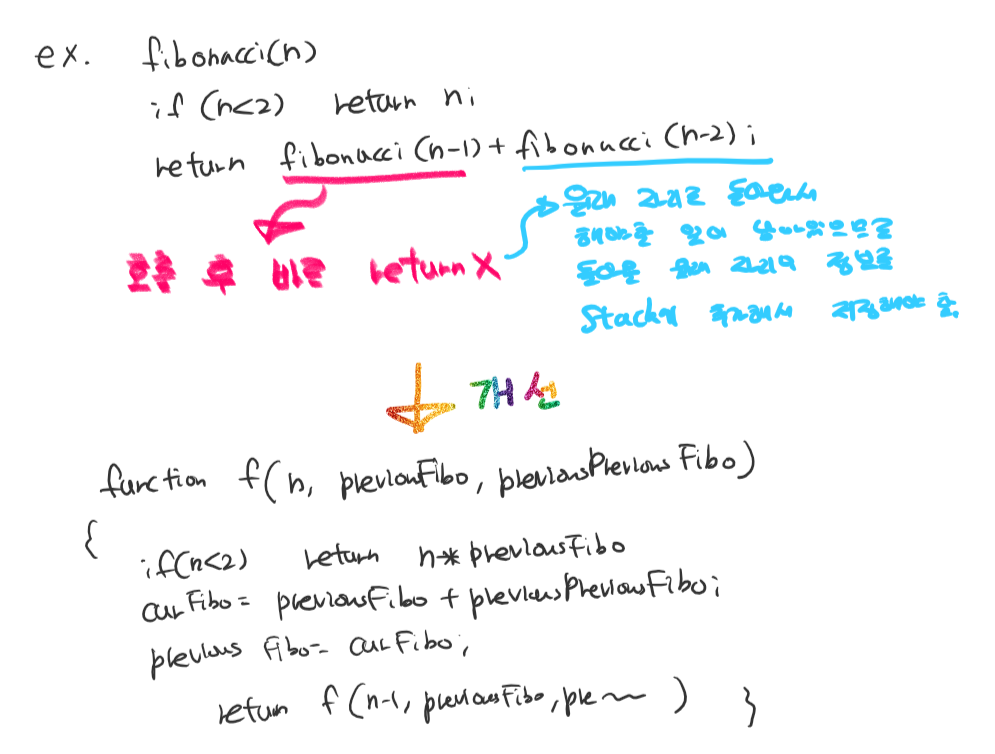 ex. fibonacci(n)
if (n<2) return n;
return fibonacci(n-1) + fibonacci(n-2);
호출 후 바로 return X
원래 자리로 돌아와서
해야할 일이 남아있으므로
돌아올 원래 자리의 정보를
Stack에 추가해서 저장해야 함.
개선
function f(n, previousFibo, previousPreviousFibo)
{
if(n<2) return n* previousFibo
curFibo = previousFibo + previousPreviousFibo;
previous Fibo = curFibo;
return f(n-1, previousFibo, pre~ ) }